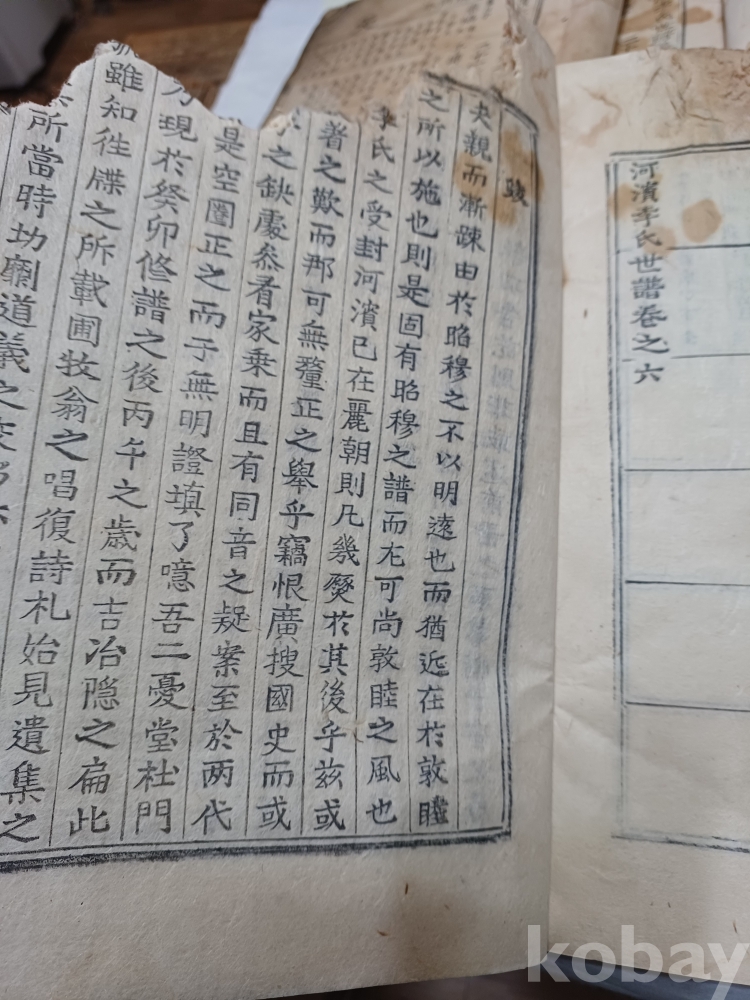 河濱李氏世譜卷之六
跋
夫親而漸踈由於昭穆之不以明遠也而猶近在於敦睦
之所以施也則是固有昭穆之譜而尤可尚敦睦之風也
李氏之受封河濱已在麗朝則凡幾燹於其後乎兹或
著之歎而那可無釐正之舉乎竊恨廣搜國史而或
之缺處叅看家乗而且有同音之疑案至於两代
是空圈正之而于無明證填了噫吾二憂堂杜門
現於癸卯修譜之後丙午之歲而吉冶隠之扁此
雖知徃牒之所載圃牧翁之唱復詩札始見遺集之
所當時功廟道義之交
kobay